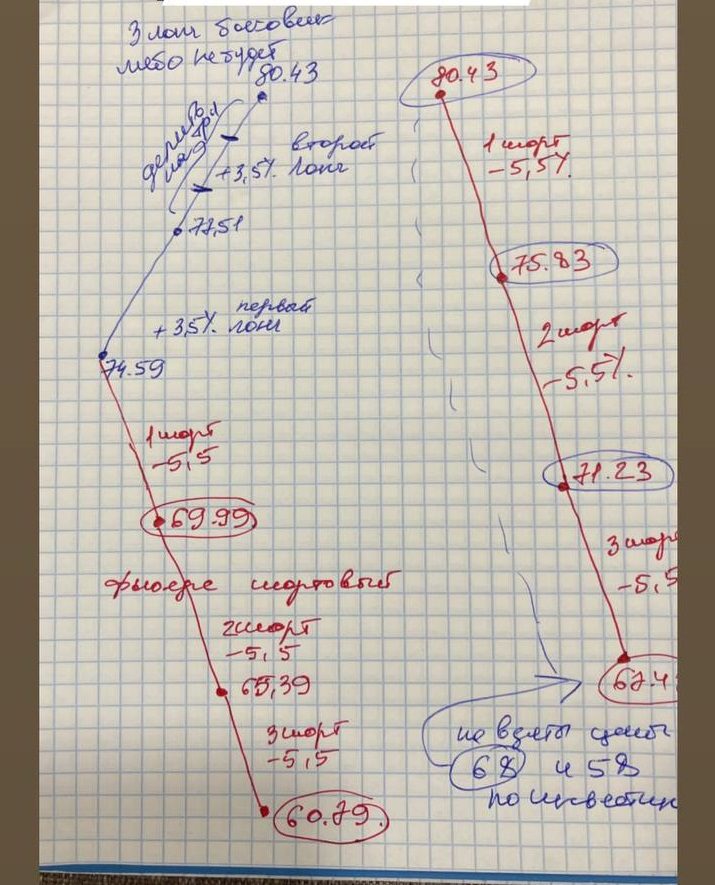 3 лонг боковик
либо не будет
80.43
делить
на 3 тр1
второй
+3,5%. лонг
77,51
первый
+3,5%. лонг
74.59
1 шорт
-5,5
69.99
фьюерс шортовый
2 шорт
-5,5
65,39
3 шорт
-5,5
60.79.
80.43
1 шорт
-5,5%.
75.83
2 шорт
-5,5%.
71.23
3 шор
-5,5
67.4
не взяты цены
68 и 58
по инвестиц